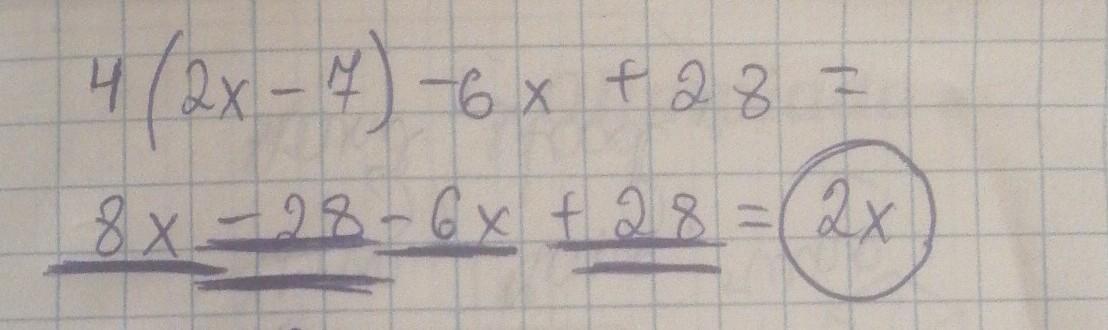 4(2x-7)-6x+28=
8x-28-6x+28=2x